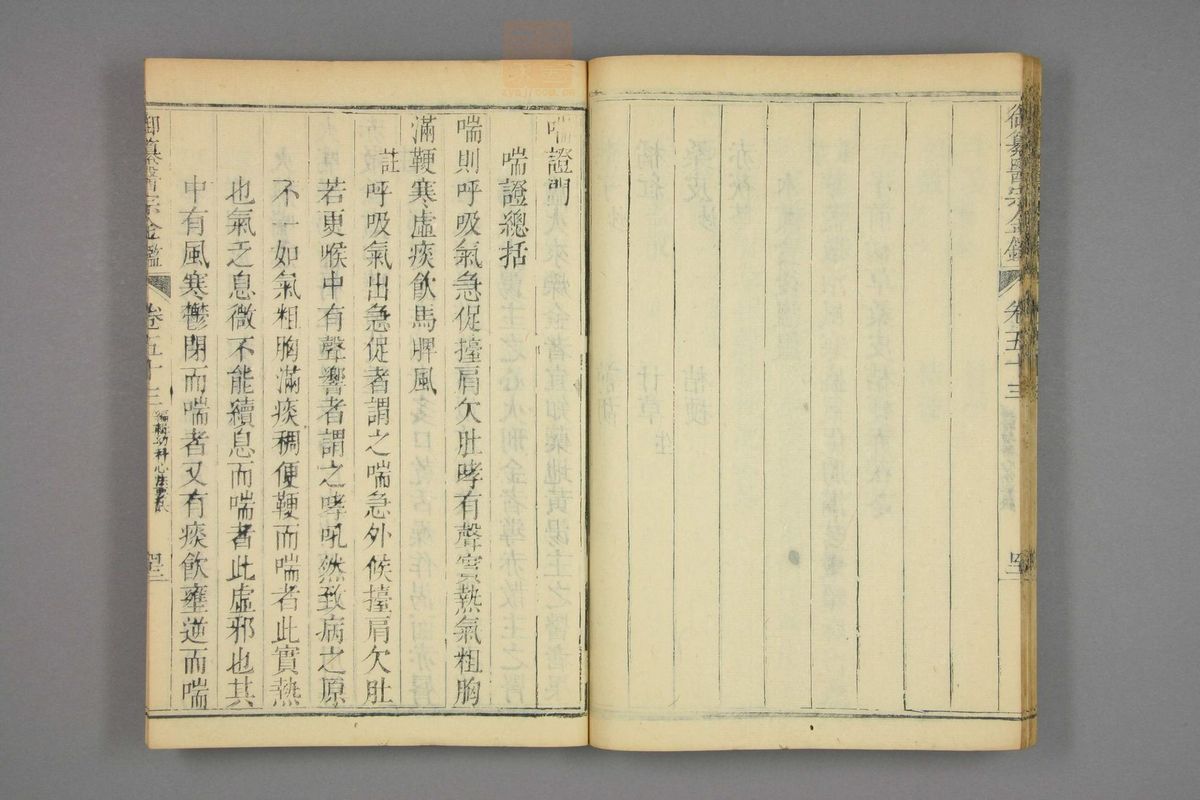 御纂醫宗金鑑
卷五十三
喘證門
喘證總括
喘則呼吸氣急促擡肩欠肚哮有聲實熱氣粗胸
滿鞕寒虛痰飲馬脾風
註呼吸氣出急促者謂之喘急外候擡肩欠肚
若更喉中有聲響者謂之哮吼然致病之原
不一如氣粗胸滿痰稠便鞕而喘者此實熱
也氣乏息微不能續息而喘者此虛邪也其
中有風寒鬱閉而喘者又有痰飲壅逆而喘
御纂醫宗金鑑
卷五十三
編輯幼科心法要訣